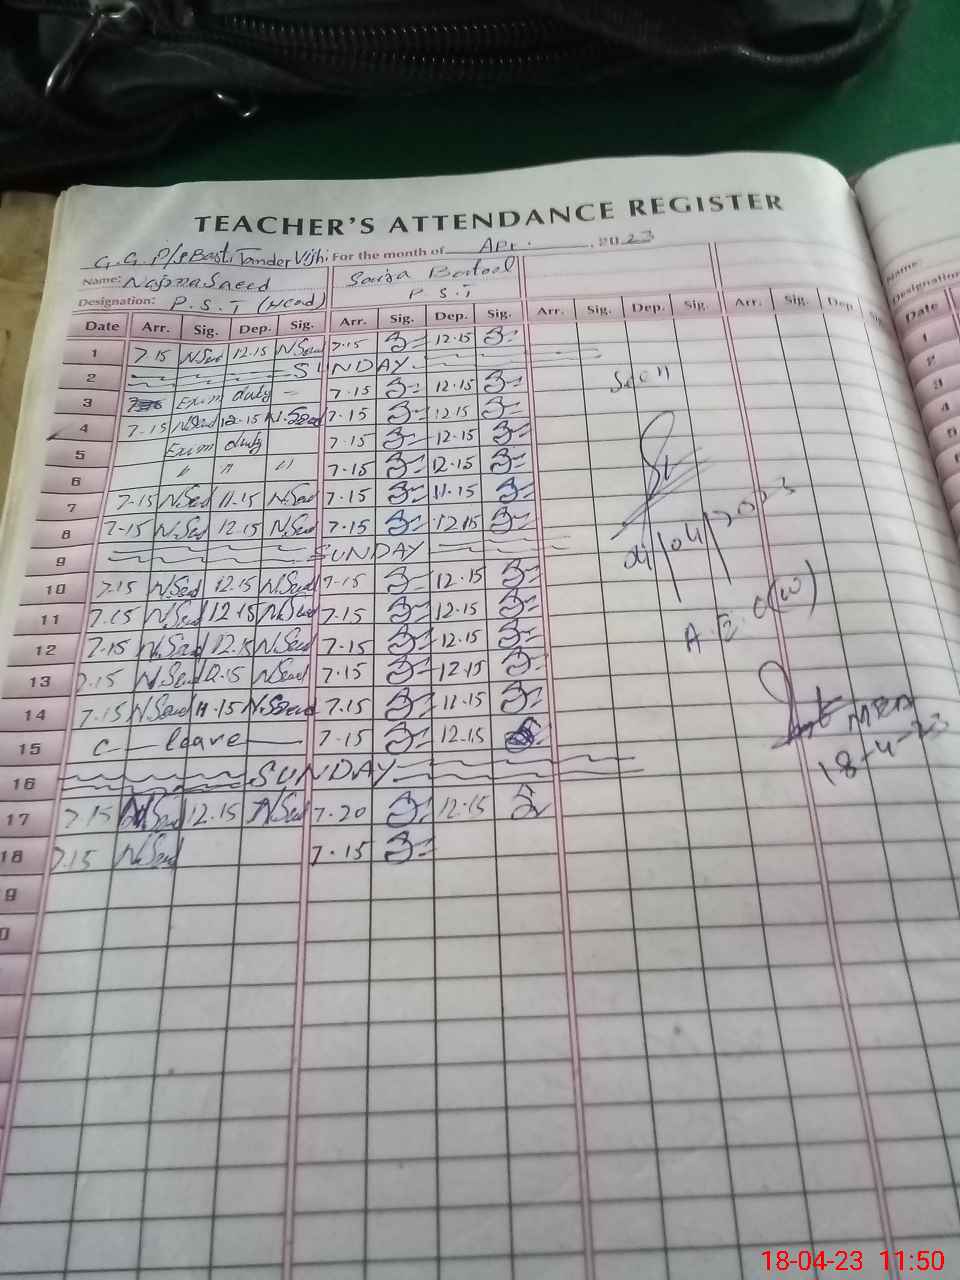 TEACHER'S ATTENDANCE REGISTER
G.G. P/S Basti Tander Vijhi For the month of Apr. 2023
Name: Najma Saeed
Designation: P.S.T (Head) P.S.T
Date Arr. Sig. Dep. Sig. Arr. Sig. Dep. Sig. Arr. Sig. Dep. Sig. Arr. Sig. Dep.
1 7.15 N.Saed 12.15 N.Saed 7.15 12.15
2 SUNDAY
3 Exam duty - 7.15 12.15
Seen
4 7.15 N.Saed 12.15 N.Saed 7.15 12.15
5 Exam duty 7.15 12.15
6 " " " 7.15 12.15
7 7.15 N.Saed 11.15 N.Saed 7.15 11.15
8 7.15 N.Saed 12.15 N.Saed 7.15 12.15
9 SUNDAY
10 7.15 N.Saed 12.15 N.Saed 7.15 12.15
11 7.15 N.Saed 12.15 N.Saed 7.15 12.15
A.E.O(W)
12 7.15 N.Saed 12.15 N.Saed 7.15 12.15
13 7.15 N.Saed 12.15 N.Saed 7.15 12.15
14 7.15 N.Saed 11.15 N.Saed 7.15 11.15
15 C - leave - 7.15 12.15
MEA
18-4-23
16 SUNDAY
17 7.15 N.Saed 12.15 N.Saed 7.20 12.15
18 7.15 N.Saed 7.15
9
0
Name:
Designation
Date
1
2
3
4
5
6
18-04-23 11:50